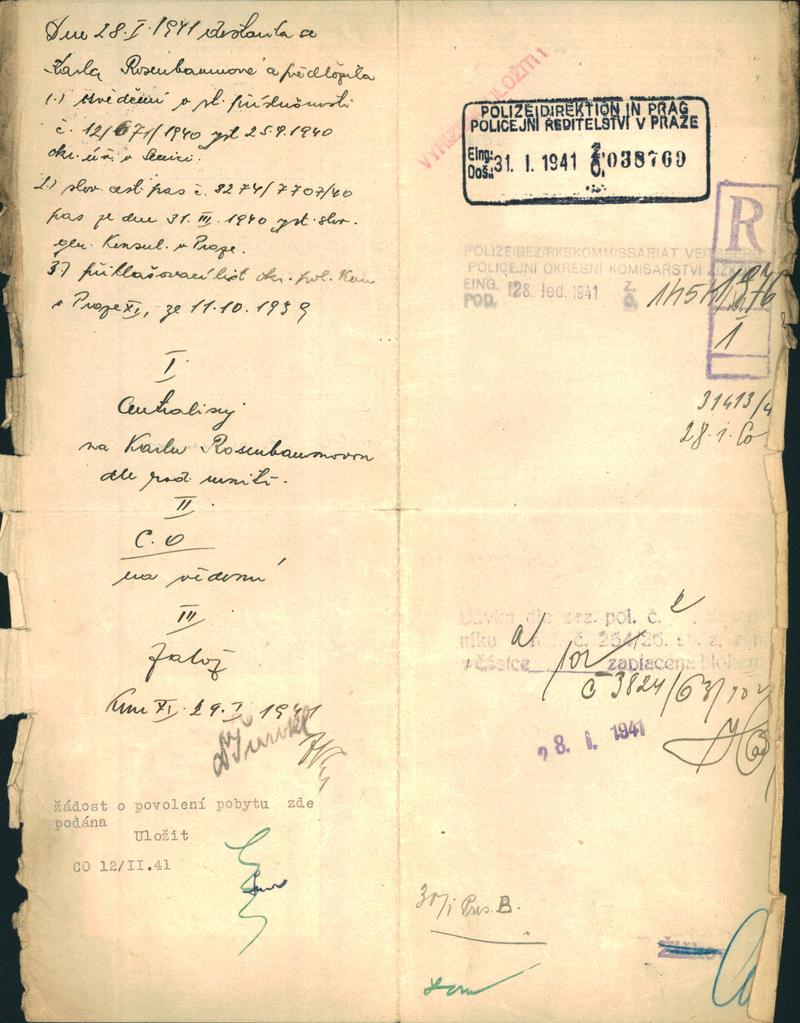 Dne 28.I.1941 dostavila se
Karla Rosenbaumová a předložila
1.) osvědčení o st. příslušnosti
č. 12/671/1940 vyst. 25.9.1940
okr. úř. v Senici.
2.) slov. cest. pas č. 3274/7707/40
pas je dne 31. III. 1940 vyst. slov.
gen. Konsul. v Praze.
3) přihlašovací list okr. pol. Kom
v Praze XI, ze 11.10.1939
I
na Karlu Rosenbaumovou
dle rod.
II
C.O
na vědomí
III
Založ
XI. 29.I. 1941
žádost o povolení pobytu zde
podána
Uložit
CO 12/II.41
ULOŽITI!
POLIZEIDIREKTION IN PRAG
POLICEJNÍ ŘEDITELSTVÍ V PRAZE
Eing:
Doš.: 31. I. 1941 Z. Č. 038769
R
POLIZEIBEZIRKSKOMMISSARIAT
POLICEJNÍ OKRESNÍ KOMISAŘSTVÍ
EING.
POD. 28. led. 1941 Z. Č.
1
31413/4
28.1.
Dávka dle saz. pol. č. 2
č. 254/26. Sb. z.
v částce 10 zaplacena blokem
č 3824/63/
28. I. 1941
30/I Pres. B.